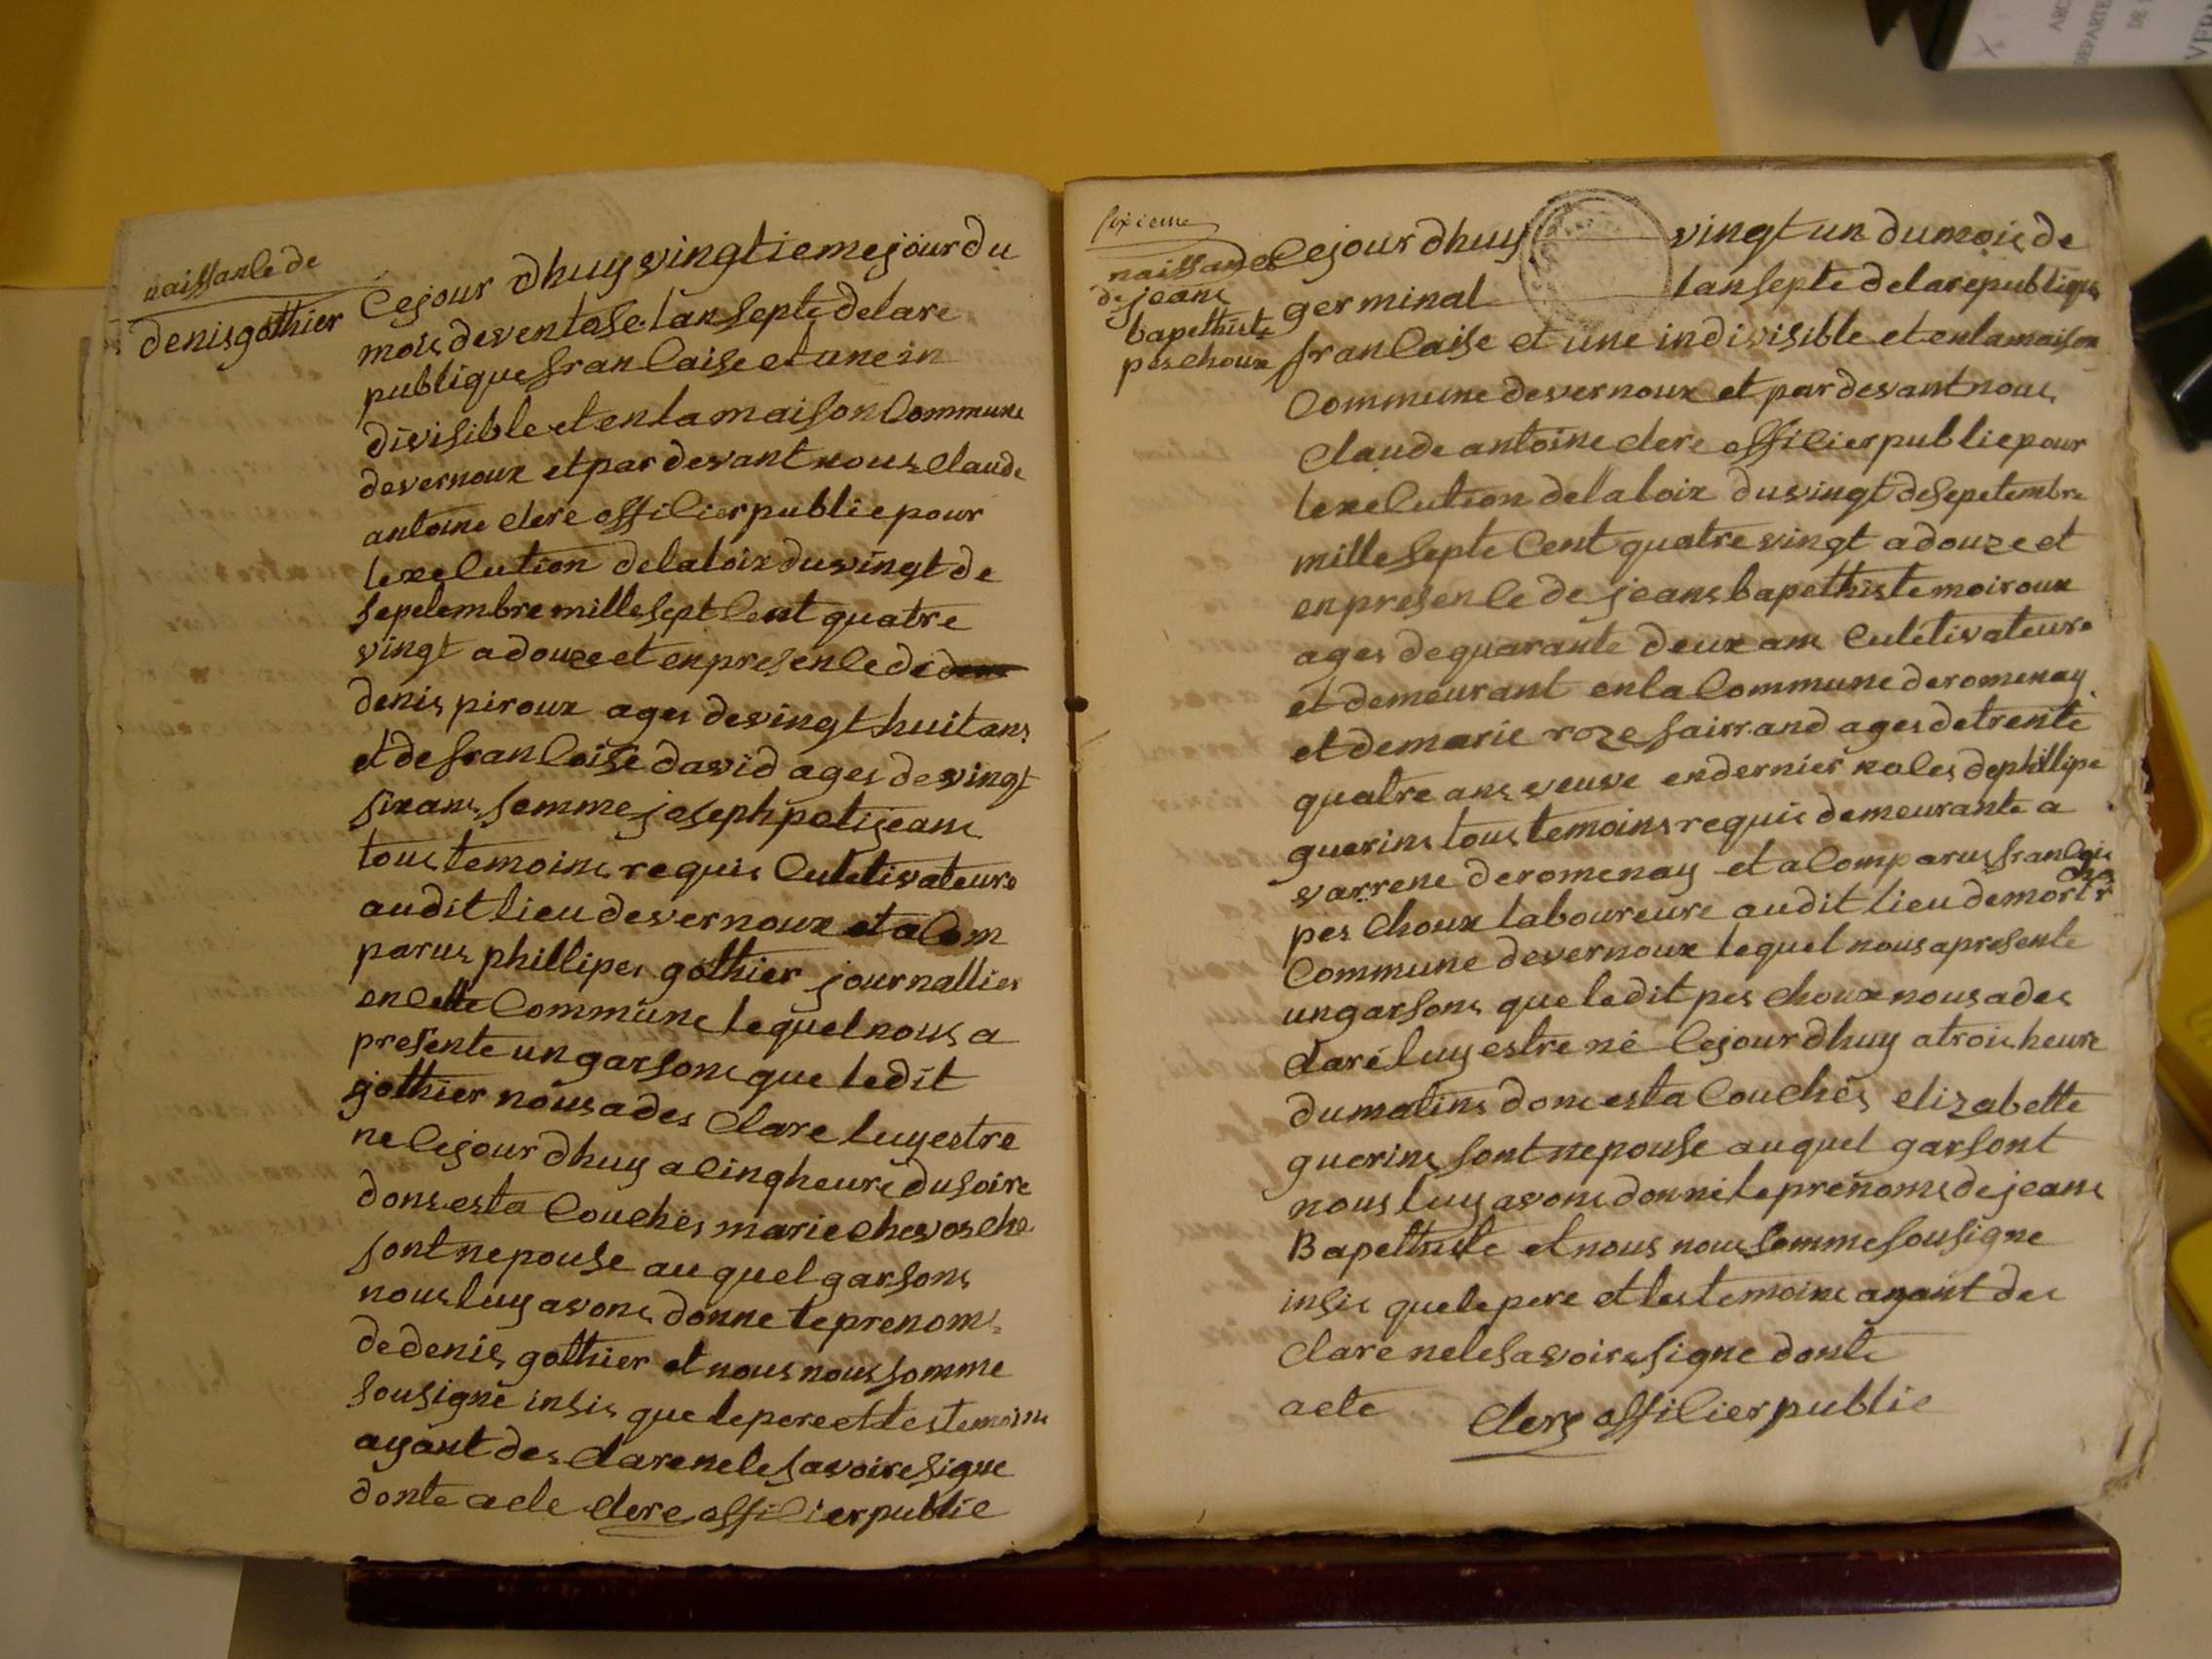 naissance de
denis gothier
Cejour dhuy vingtieme jour du
mois de ventose lan septe de la re
publique francaise et une in
divisible et en la maison Commune
de vernoux et par devant nous Claude
antoine clerc officier public pour
lexecution de la loix du vingt de
sepetembre mille sept Cent quatre
vingt a douze et en presence de
denis piroux ages de vingt huit ans
et de francoise david ages de vingt
six ans femme joseph petijeans
tous temoins requis Culetivateurs
audit lieu de vernoux et a Com
parus phillipes gothier journallier
en Cette Commune lequel nous a
presente un garsons que ledit
gothier nous a des Clare luy estre
ne Cejour dhuy a Cinq heure du soire
dons esta Couches marie chevosche
sont nepouse au quel garsons
nous luy avons donne le prenoms
de denis gothier et nous nous somme
sousigne insis que le pere et les temoins
ayant des Clare ne le savoire signe
donte acte clerc officier public
sixieme
naissance
de jeans
bapethiste
pes choux
Cejour dhuy vingt un du mois de
germinal lan septe de la republique
francaise et une indivisible et en la maison
Commune de vernoux et par devant nous
Claude antoine clerc officier public pour
lexecution de la loix du vingt de sepetembre
mille septe Cent quatre vingt a douze et
en presence de jeans bapethiste moiroux
ages de quarante deux ans Culetivateurs
et demeurant en la Commune de romenay
et de marie roze fairrand ages de trente
quatre ans veuve en dernier noles de phillipe
guerins tous temoins requis demeurante a
varrene de romenay et a Comparus francois
pes Choux laboureure audit lieu de
Commune de vernoux lequel nous a presente
un garsons que ledit pes choux nous a des
Claré luy estre né Cejour dhuy a trois heure
du matins dons esta Couchés elizabette
guerins sont nepouse au quel garsont
nous luy avons donné le prenoms de jeans
Bapethiste et nous nous somme sousigne
insis que le pere et les temoins ayant des
Clare ne le savoire signe donte
acte clerc officier public